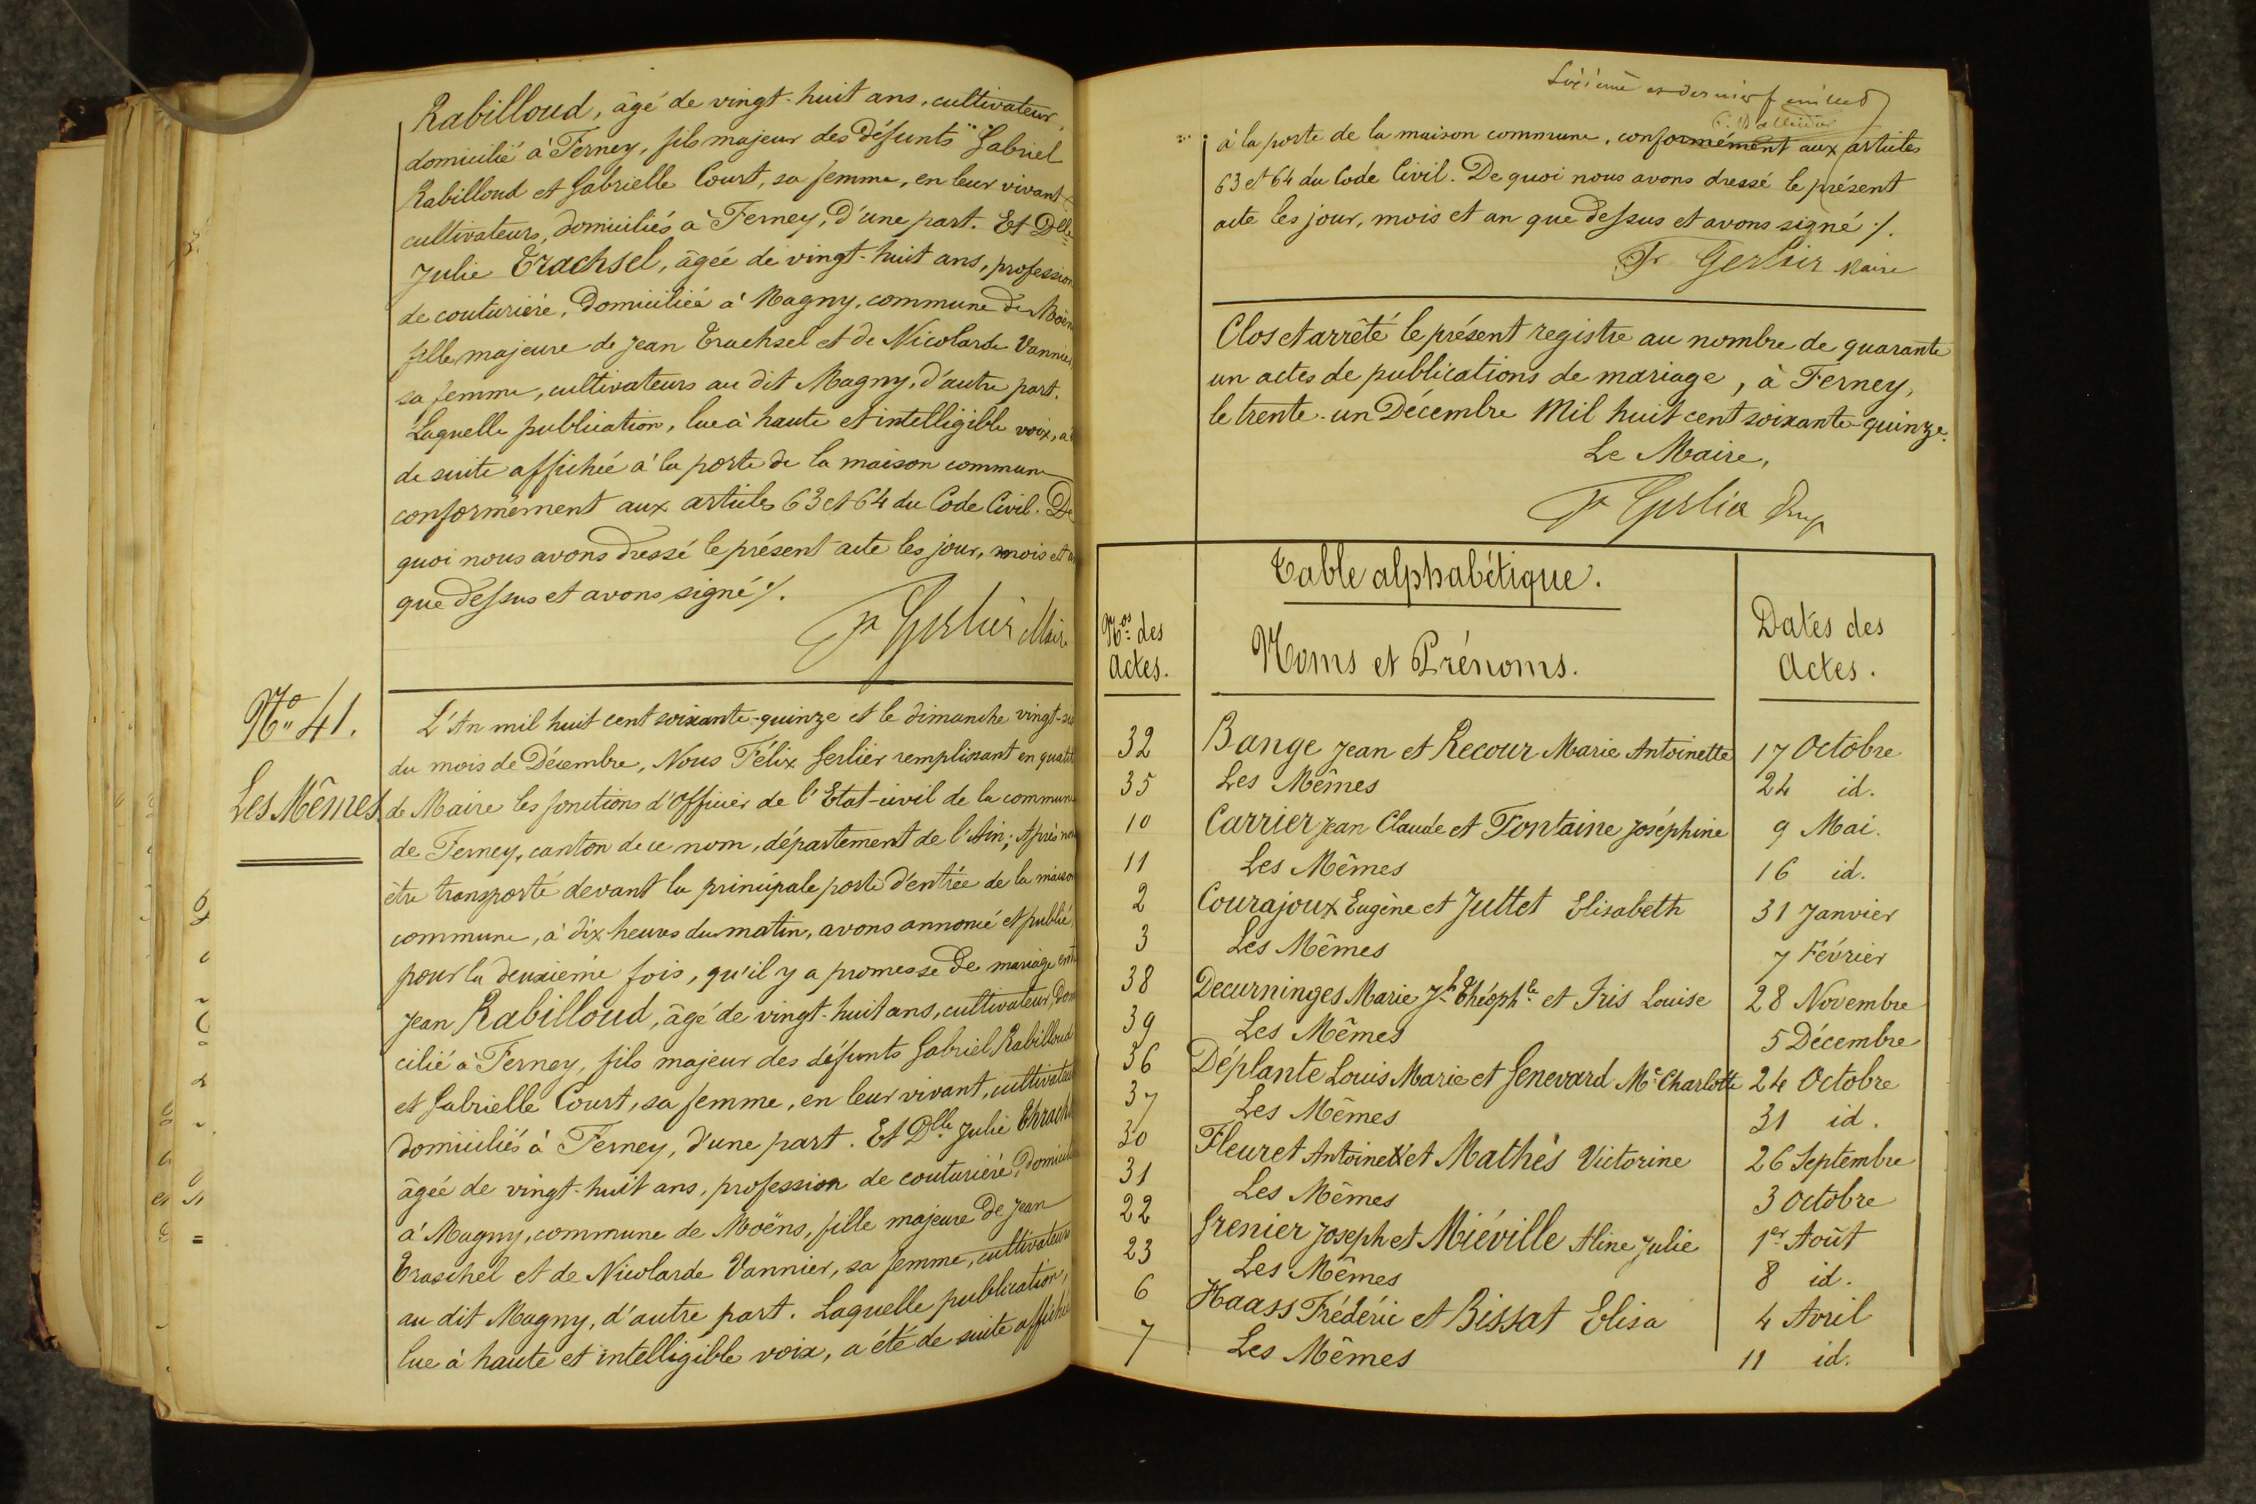 Rabilloud, âgé de vingt-huit ans, cultivateur,
domicilié à Ferney, fils majeur des défunts Gabriel
Rabilloud et Gabrielle Court, sa femme, en leur vivant
cultivateurs, domiciliés à Ferney, d'une part. Et Dlle
Julie Trachsel, âgée de vingt-huit ans, profession
de couturière, domiciliée à Magny, commune de Moëns
fille majeure de Jean Trachsel et de Nicolarde Vannier,
sa femme, cultivateurs au dit Magny, d'autre part.
Laquelle publication, lue à haute et intelligible voix, a
de suite affichée à la porte de la maison commune
conformément aux articles 63 et 64 du Code Civil. De
quoi nous avons dressé le présent acte les jour, mois et an
que dessus et avons signé ./.
Fx Gerlier Maire
No 41.
Les Mêmes
L'An mil huit cent soixante-quinze et le dimanche vingt-six
du mois de Décembre, Nous Félix Gerlier remplissant en qualité
de Maire les fonctions d'Officier de l'Etat-civil de la commune
de Ferney, canton de ce nom, département de l'Ain; Après nous
être transporté devant la principale porte d'entrée de la maison
commune, à dix heures du matin, avons annoncé et publié
pour la deuxième fois, qu'il y a promesse de mariage entre
Jean Rabilloud, âgé de vingt-huit ans, cultivateur, domi
cilié à Ferney, fils majeur des défunts Gabriel Rabilloud
et Gabrielle Court, sa femme, en leur vivant, cultivateurs
domiciliés à Ferney, d'une part. Et Dlle Julie Thrachs
âgée de vingt-huit ans, profession de couturière, domicili
à Magny, commune de Moëns, fille majeure de Jean
Traschel et de Nicolarde Vannier, sa femme, cultivateurs
au dit Magny, d'autre part. Laquelle publication,
lue à haute et intelligible voix, a été de suite affichée
Sixième et dernier feuillet
à la porte de la maison commune, conformément aux articles
63 et 64 du Code Civil. De quoi nous avons dressé le présent
acte les jour, mois et an que dessus et avons signé ./.
Fx Gerlier Maire
Clos et arrêté le présent registre au nombre de quarante
un actes de publications de mariage, à Ferney,
le trente-un Décembre Mil huit cent soixante-quinze.
Le Maire,
Fx Gerlier
Table alphabétique.
Nos des Actes. Noms et Prénoms. Dates des Actes.
32 Bange Jean et Recour Marie Antoinette 17 Octobre
35 Les Mêmes 24 id.
10 Carrier Jean Claude et Fontaine Joséphine 9 Mai.
11 Les Mêmes 16 id.
2 Courajoux Eugène et Juttet Elisabeth 31 Janvier
3 Les Mêmes 7 Février
38 Decurninges Marie Jh Théophle et Iris Louise 28 Novembre
39 Les Mêmes 5 Décembre
36 Déplante Louis Marie et Genevard Me Charlotte 24 Octobre
37 Les Mêmes 31 id.
30 Fleuret Antoine et Mathés Victorine 26 Septembre
31 Les Mêmes 3 Octobre
22 Grenier Joseph et Miéville Aline Julie 1er Août
23 Les Mêmes 8 id.
6 Haass Frédéric et Bissat Elisa 4 Avril
7 Les Mêmes 11 id.